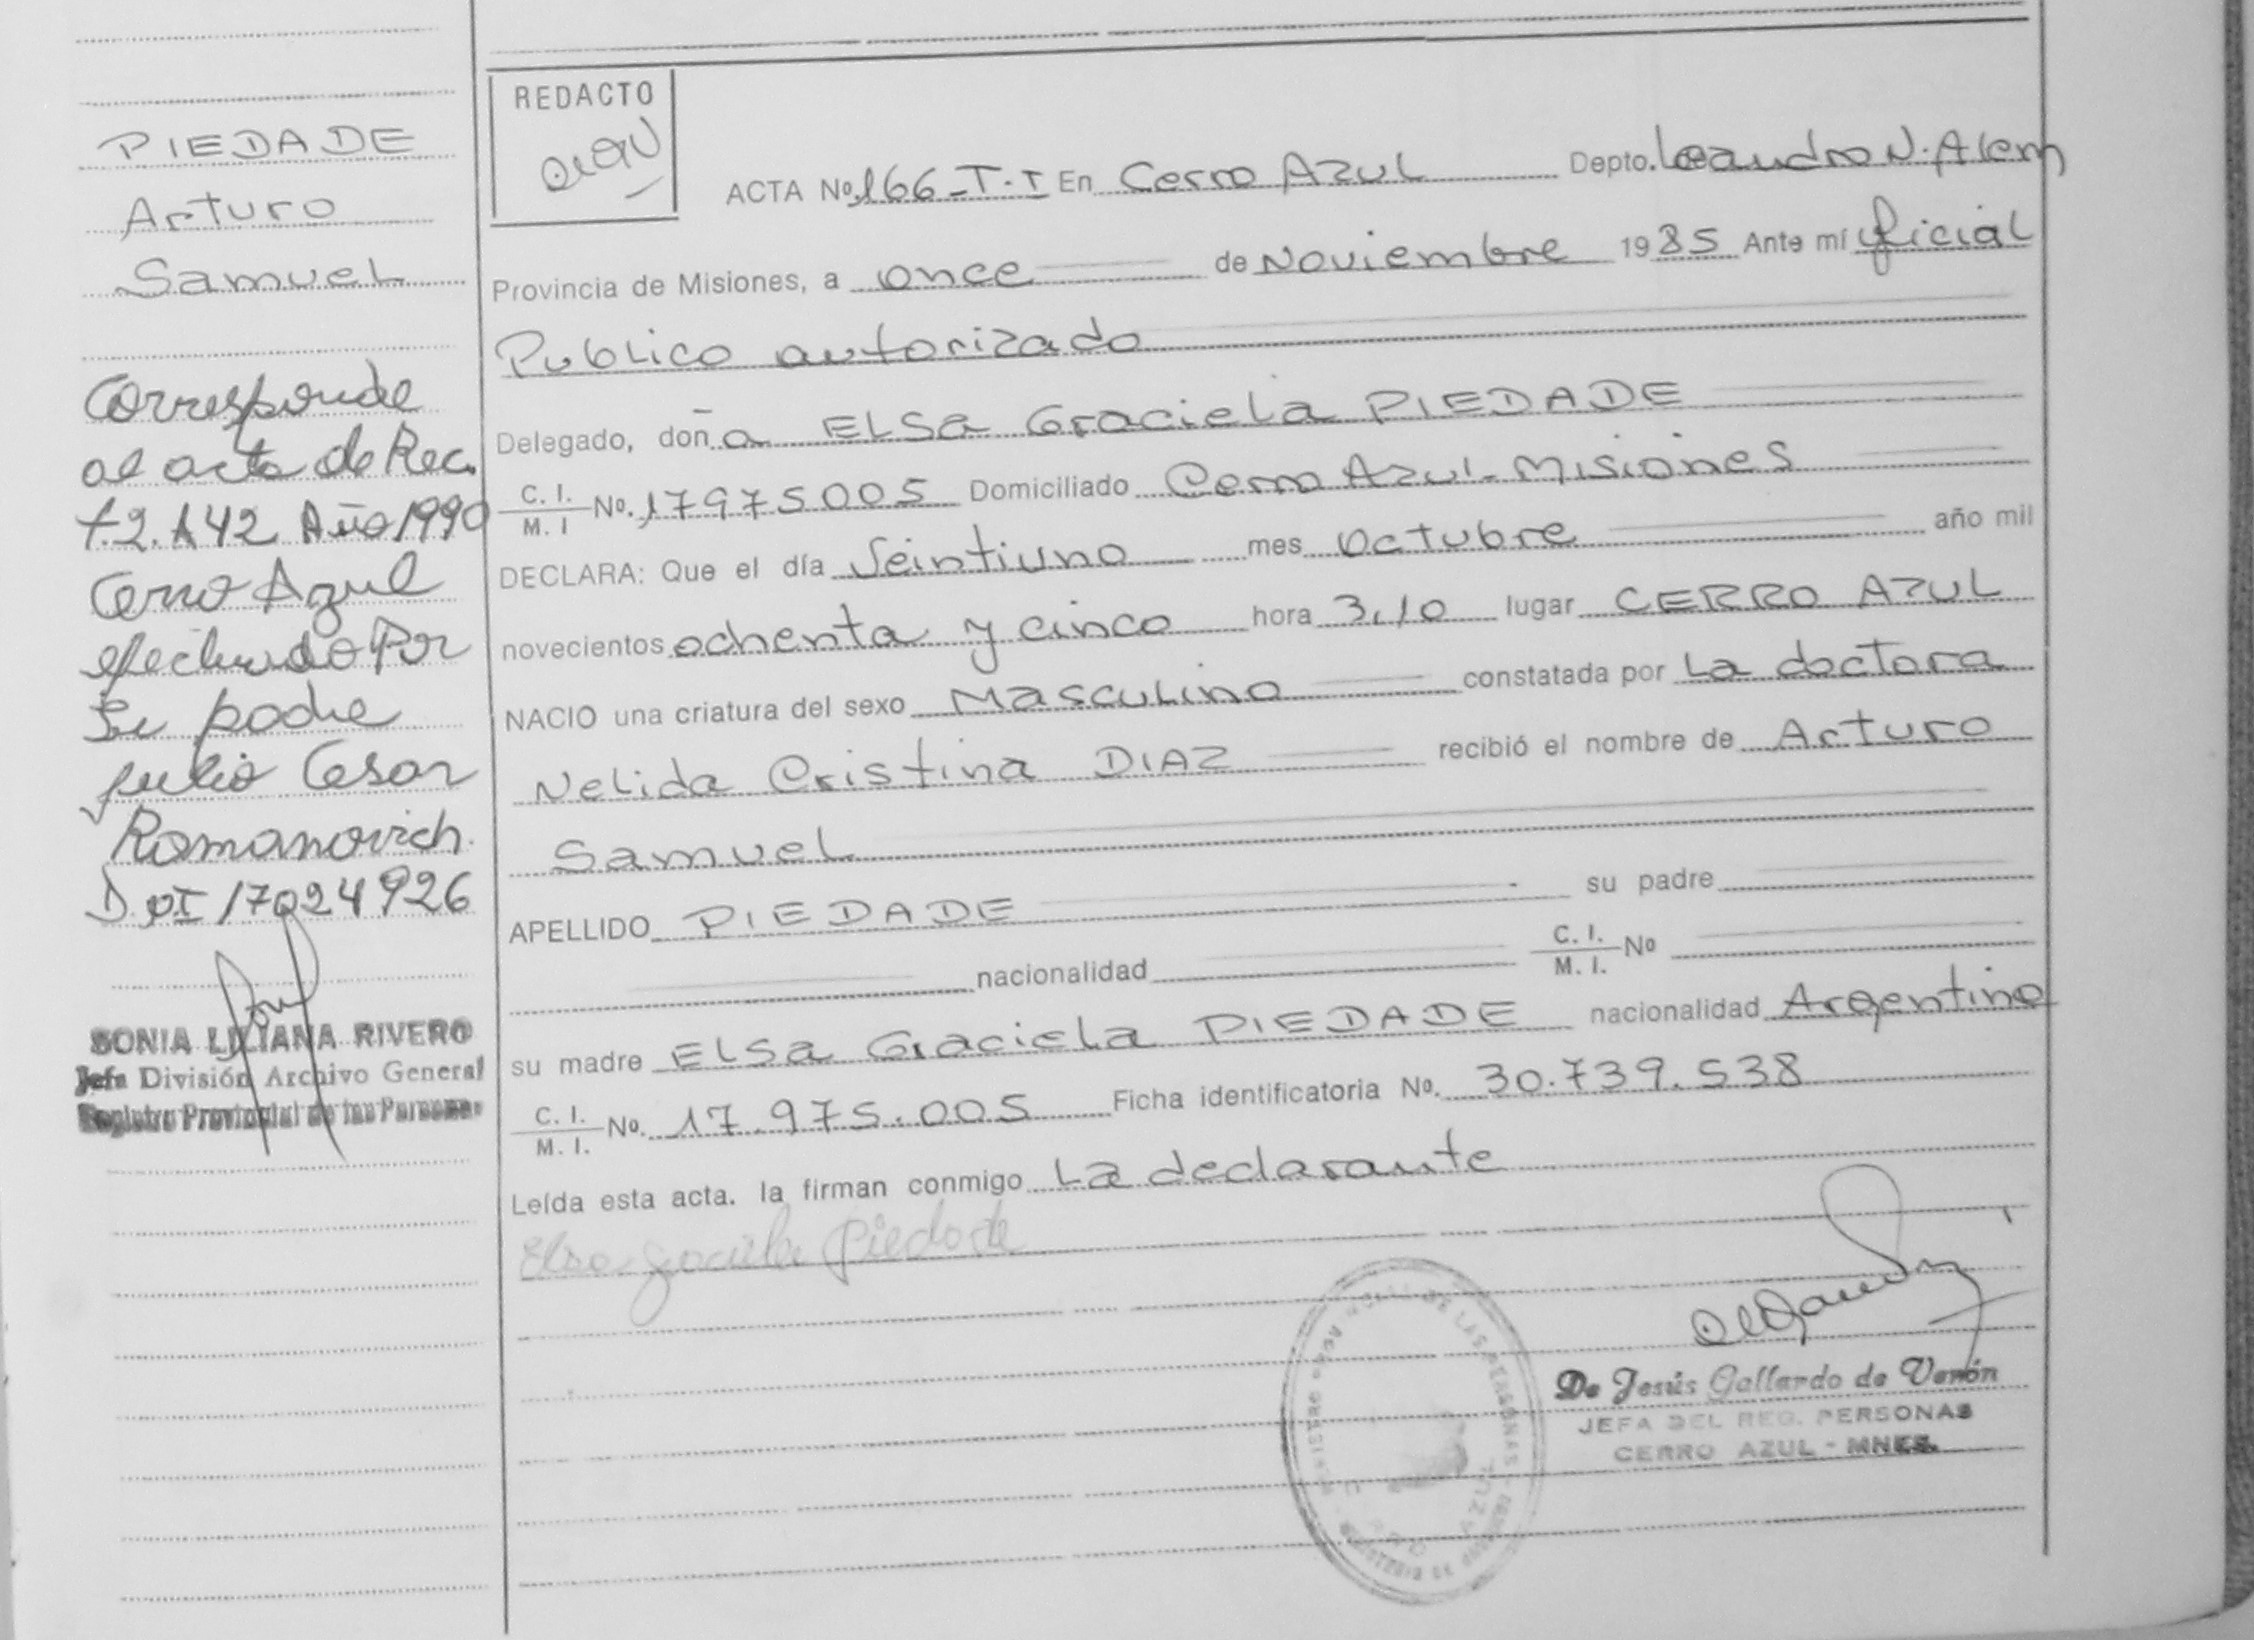 PIEDADE
Arturo
Samuel
Corresponde
al acta de Rec.
t.2. A 42 Año 1990
Cerro Azul
efectuado Por
Su padre
Julio Cesar
Romanovich
DNI 17024926
SONIA LILIANA RIVERO
Jefa División Archivo General
Registro Provincial de las Personas
REDACTO
ACTA No. 166-T.I En Cerro AZUL Depto. Leandro N. Alem
Provincia de Misiones, a once de Noviembre 1985 Ante mí Oficial
Publico autorizado
Delegado, doña ELSa Graciela PIEDADE
C. I. / M. I No. 17975005 Domiciliado Cerro Azul-Misiones
DECLARA: Que el día Veintiuno mes octubre año mil
novecientos ochenta y cinco hora 3,10 lugar CERRO AZUL
NACIO una criatura del sexo Masculino constatada por La doctora
Nelida Cristina DIAZ recibió el nombre de Arturo
Samuel
APELLIDO PIEDADE su padre
nacionalidad C. I. / M. I. No
su madre ELSa Graciela PIEDADE nacionalidad Argentina
C. I. / M. I. No. 17.975.005 Ficha identificatoria No. 30.739.538
Leída esta acta. la firman conmigo La declarante
Elsa Graciela Piedade
De Jesús Gallardo de Verón
JEFA DEL REG. PERSONAS
CERRO AZUL - MNES.
DE LAS PERSONAS
AZUL